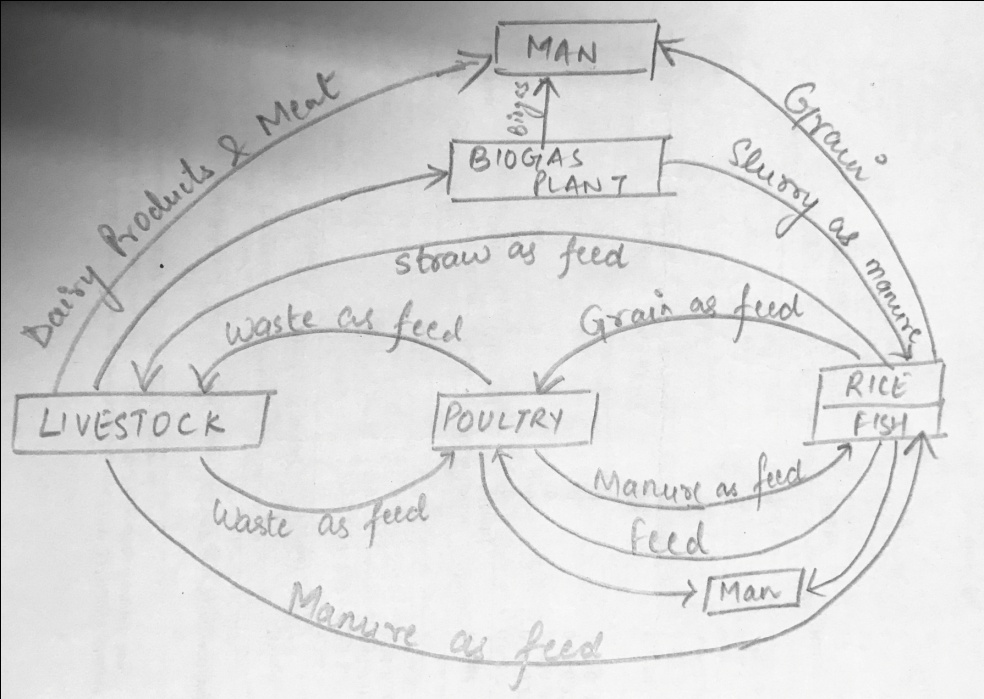 MAN
Biogas
Dairy Products & Meat
Grain
BIOGAS
PLANT
Slurry as manure
Straw as feed
Waste as feed
Grain as feed
LIVESTOCK
POULTRY
RICE
FISH
Waste as feed
Manure as feed
Feed
Man
Manure as feed